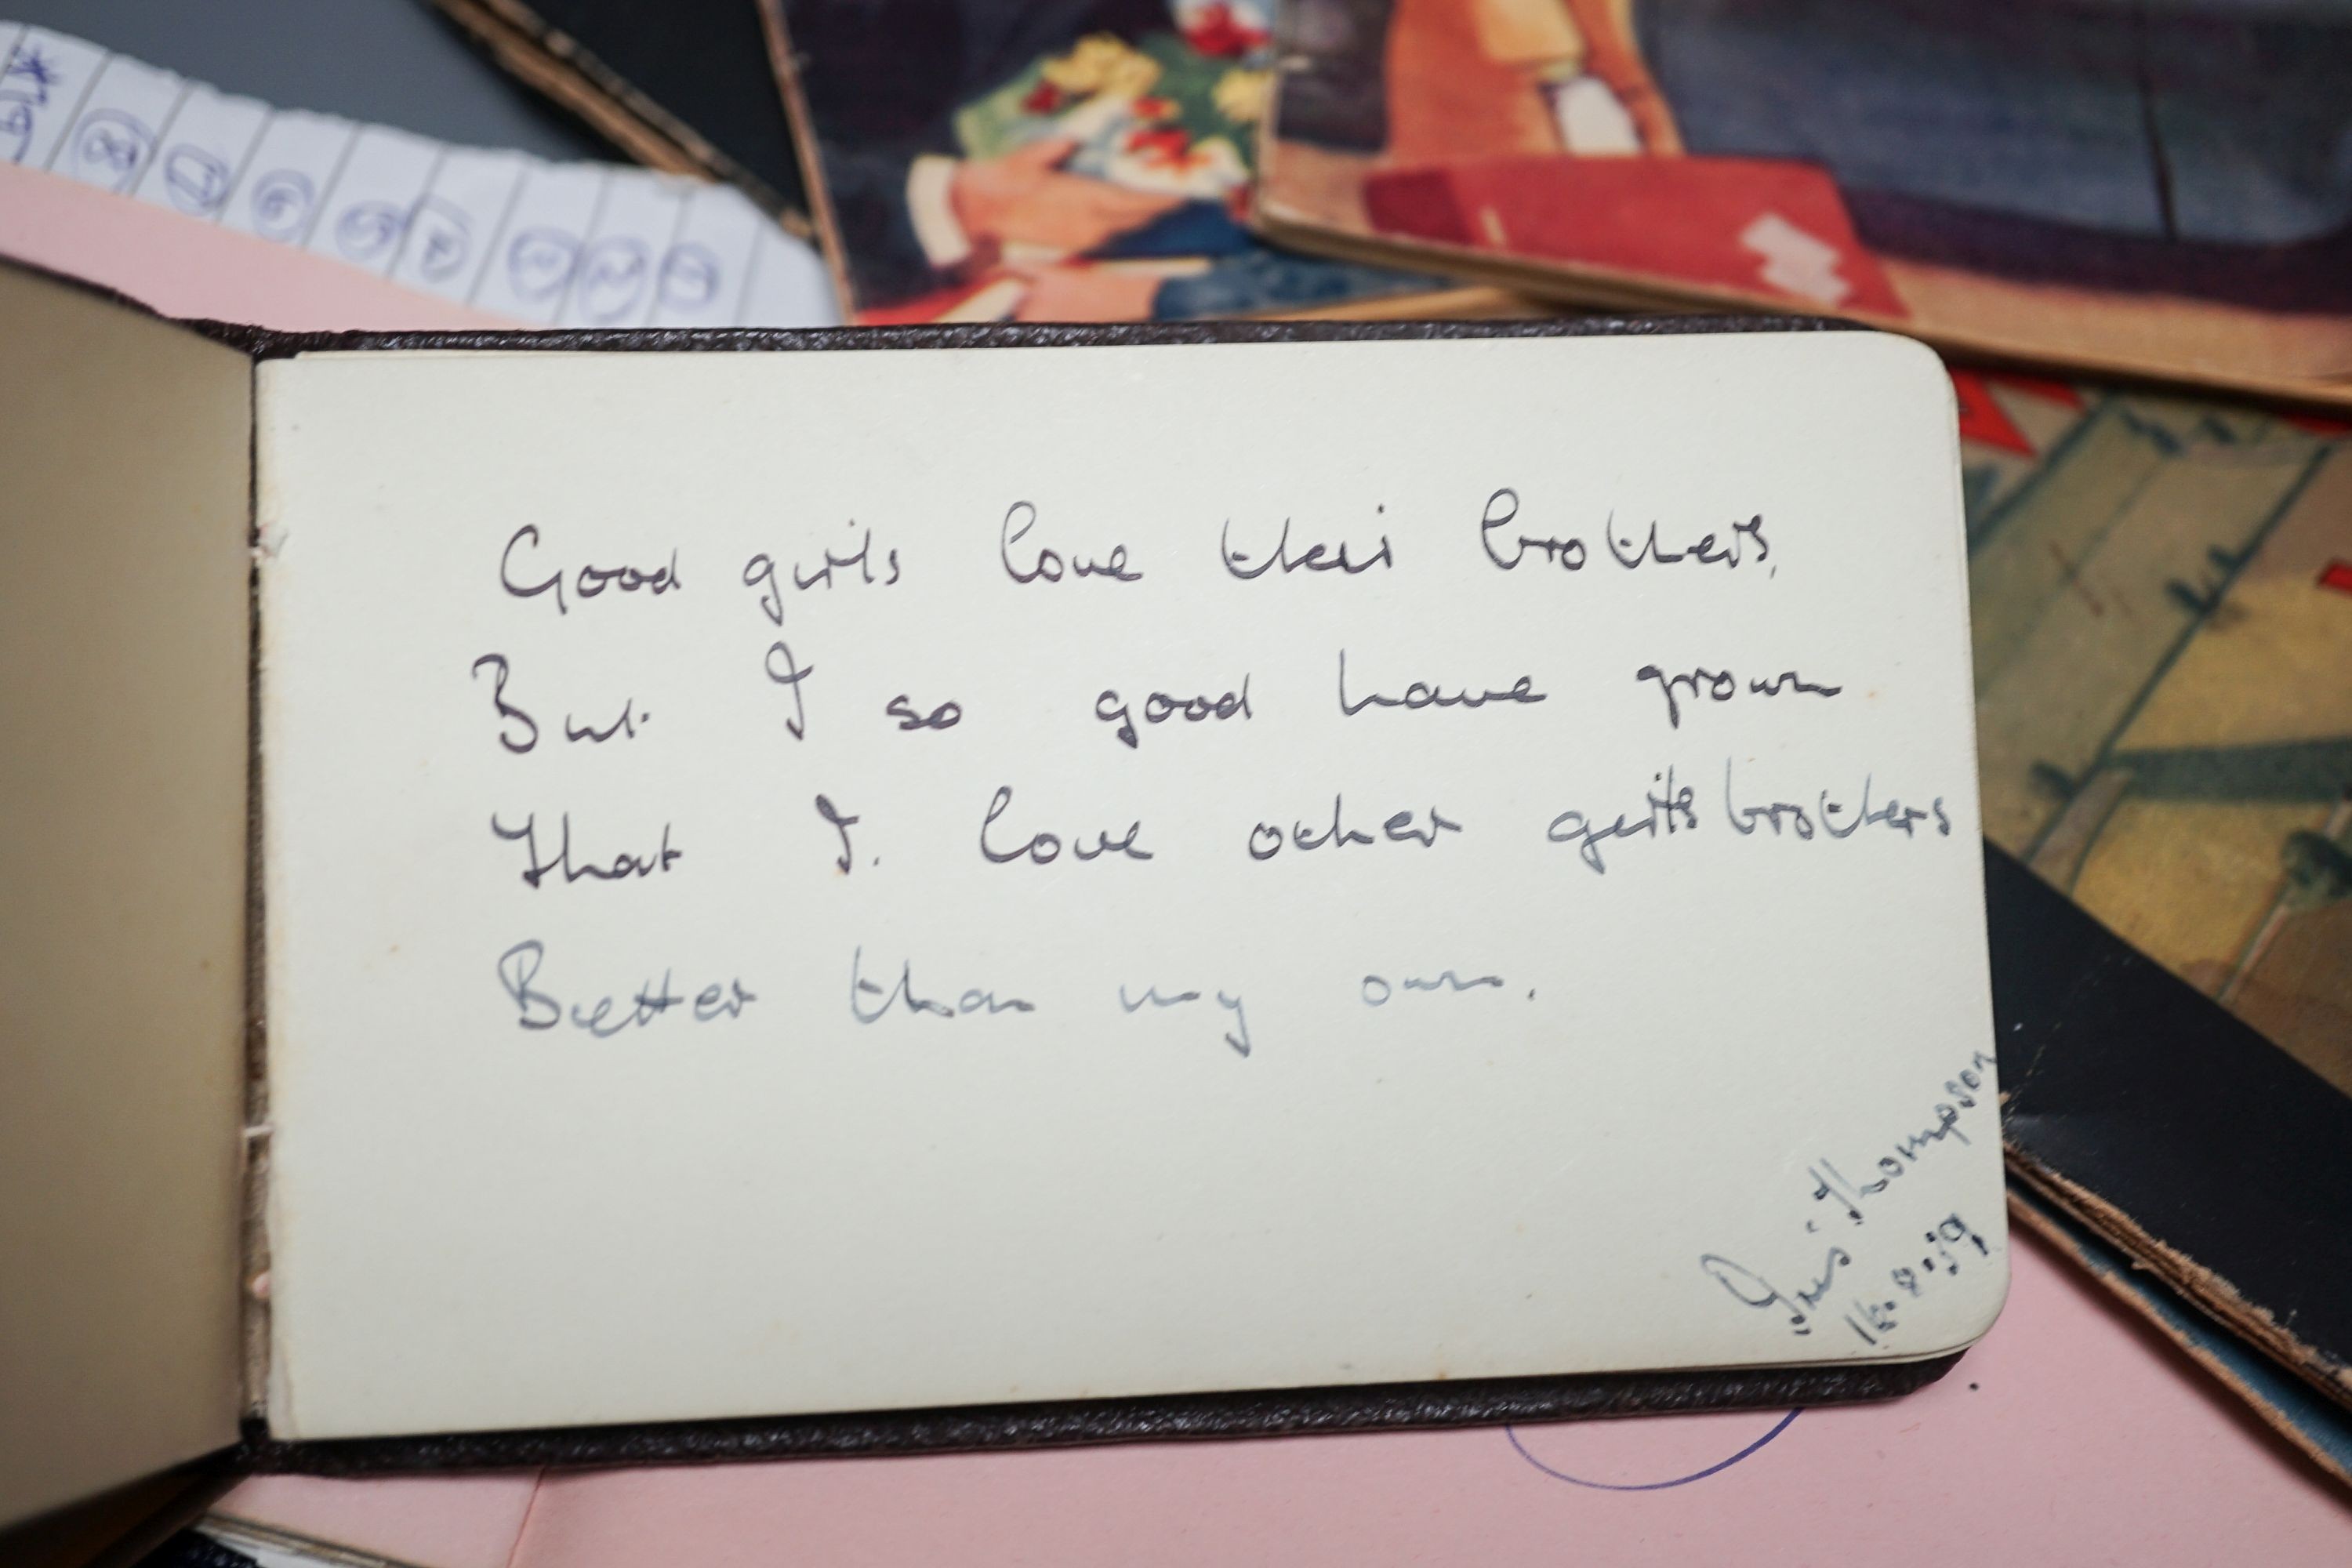 Good girls love their brothers,
But I so good have grown
That I. love other girls brothers
Better than my own.
Iris Thompson